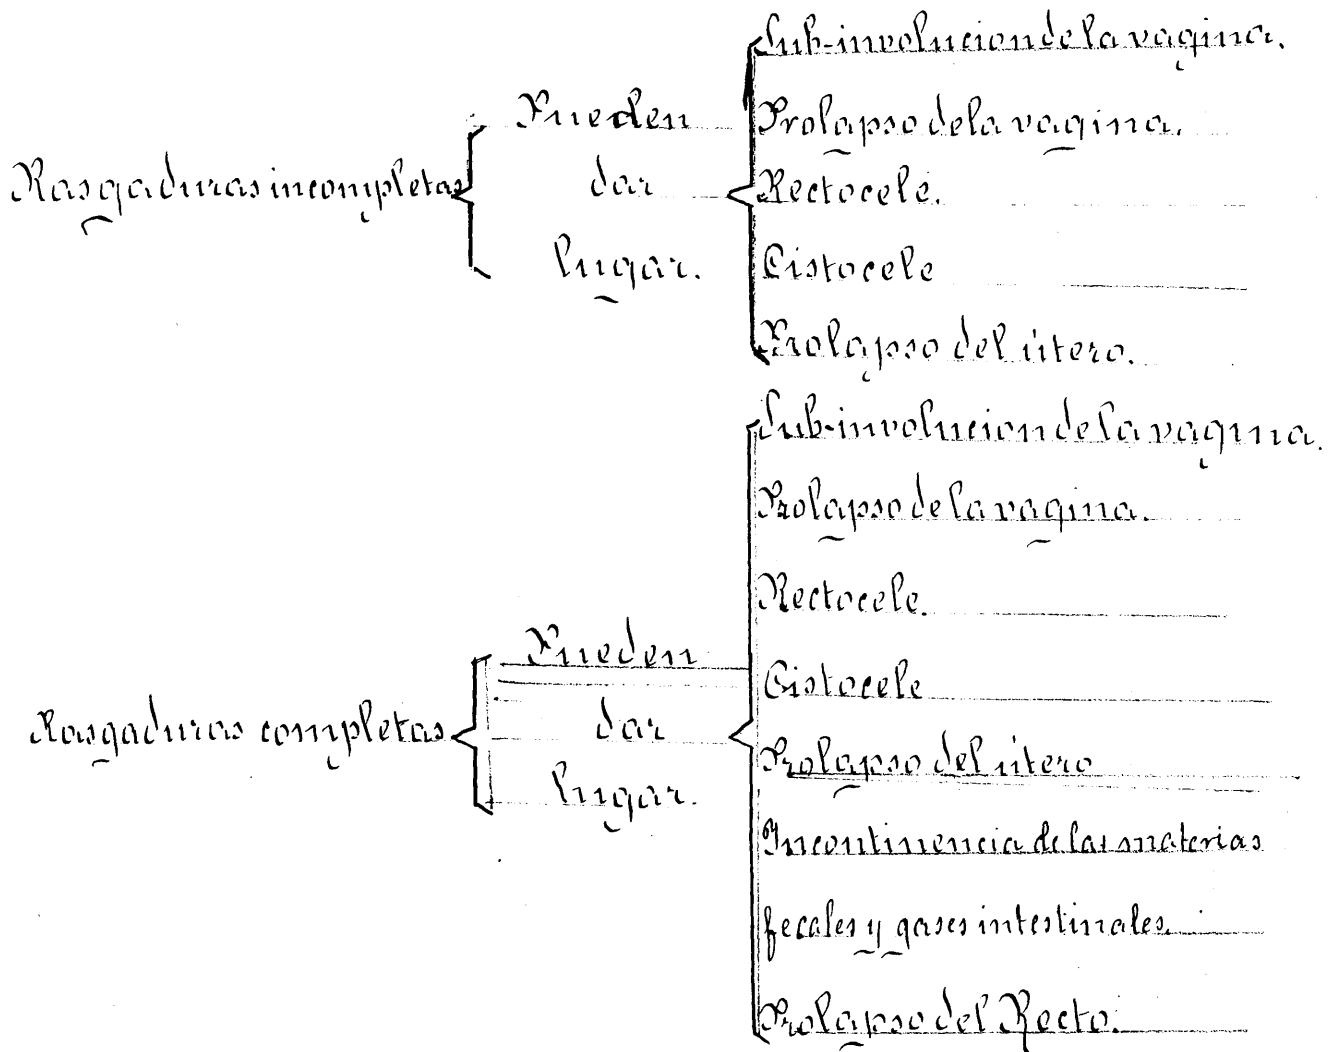 Rasgaduras incompletas
Pueden
dar
lugar.
Sub-involucion de la vagina.
Prolapso de la vagina.
Rectocele.
Cistocele
Prolapso del útero.
Rasgaduras completas
Pueden
dar
lugar.
Sub-involucion de la vagina.
Prolapso de la vagina.
Rectocele.
Cistocele
Prolapso del útero
Incontinencia de las materias
fecales y gases intestinales.
Prolapso del Recto.